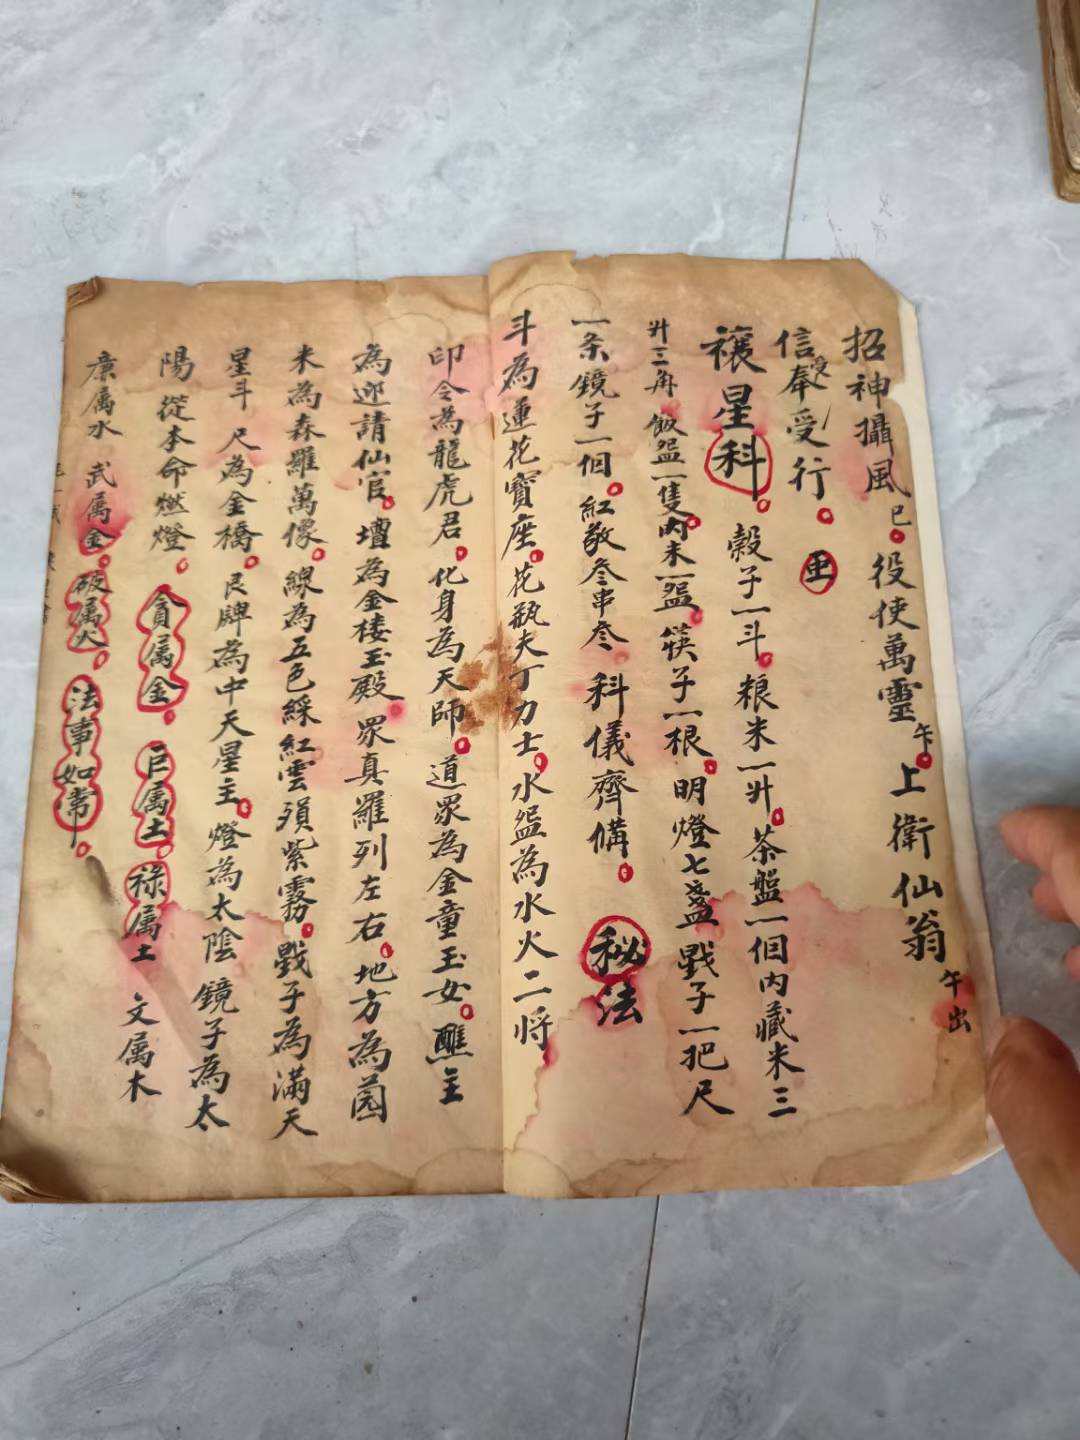 招神攝風巳。役使萬靈午。上衛仙翁午出
信受奉受行。亜
禳星科。穀子一斗。粮米一升。茶盤一個内藏米三
升三角。飯盌一隻内米一盌。筷子一根。明燈七盞。戥子一把尺
一条鏡子一個。紅敬叁串叁 科儀齊備。秘法
斗為蓮花寳座。花瓶夫丁力士。水盌為水火二将
印令為龍虎君。化身為天師。道眾為金童玉女。醮主
為迎請仙官。壇為金楼玉殿。眾真羅列左右。地方為园
米為森羅萬像。線為五色綵紅雲須紫霧。戥子為滿天
星斗 尺為金橋。民牌為中天星主。燈為太陰 鏡子為太
陽 從本命燃燈。貪属金。巨属土。禄属土 文属木
廉属水 武属金。破属火。法事如常。